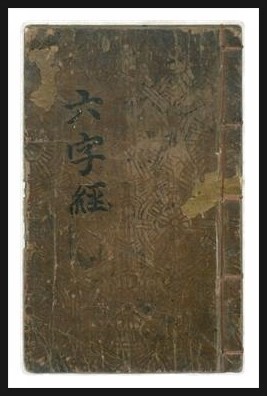 六字經